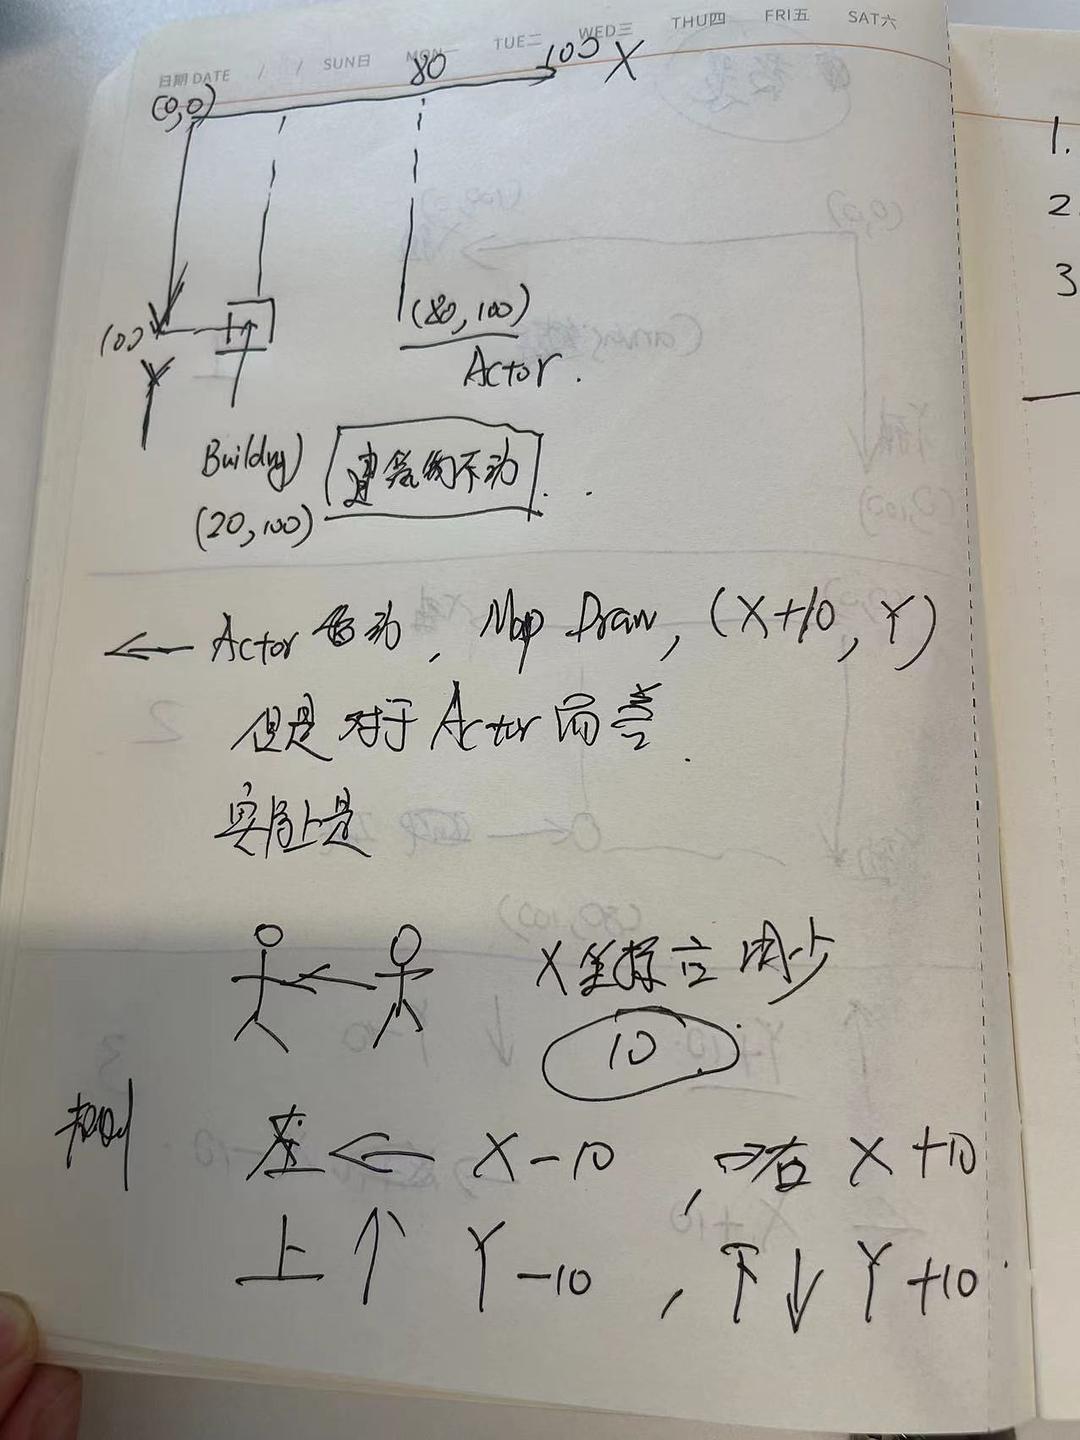 日期 DATE / / SUN日 MON一 TUE二 WED三 THU四 FRI五 SAT六
(0,0) 80 100 X
100
Y
(80,100)
Actor.
Building
(20,100)
建筑物不动
← Actor 移动, Map Draw, (X+10, Y)
但是对于Actor而言
实际上是
X坐标应减少
10
规则
左 ← X-10, ⇒右 X+10
上 ↑ Y-10, 下↓ Y+10
1.
2.
3